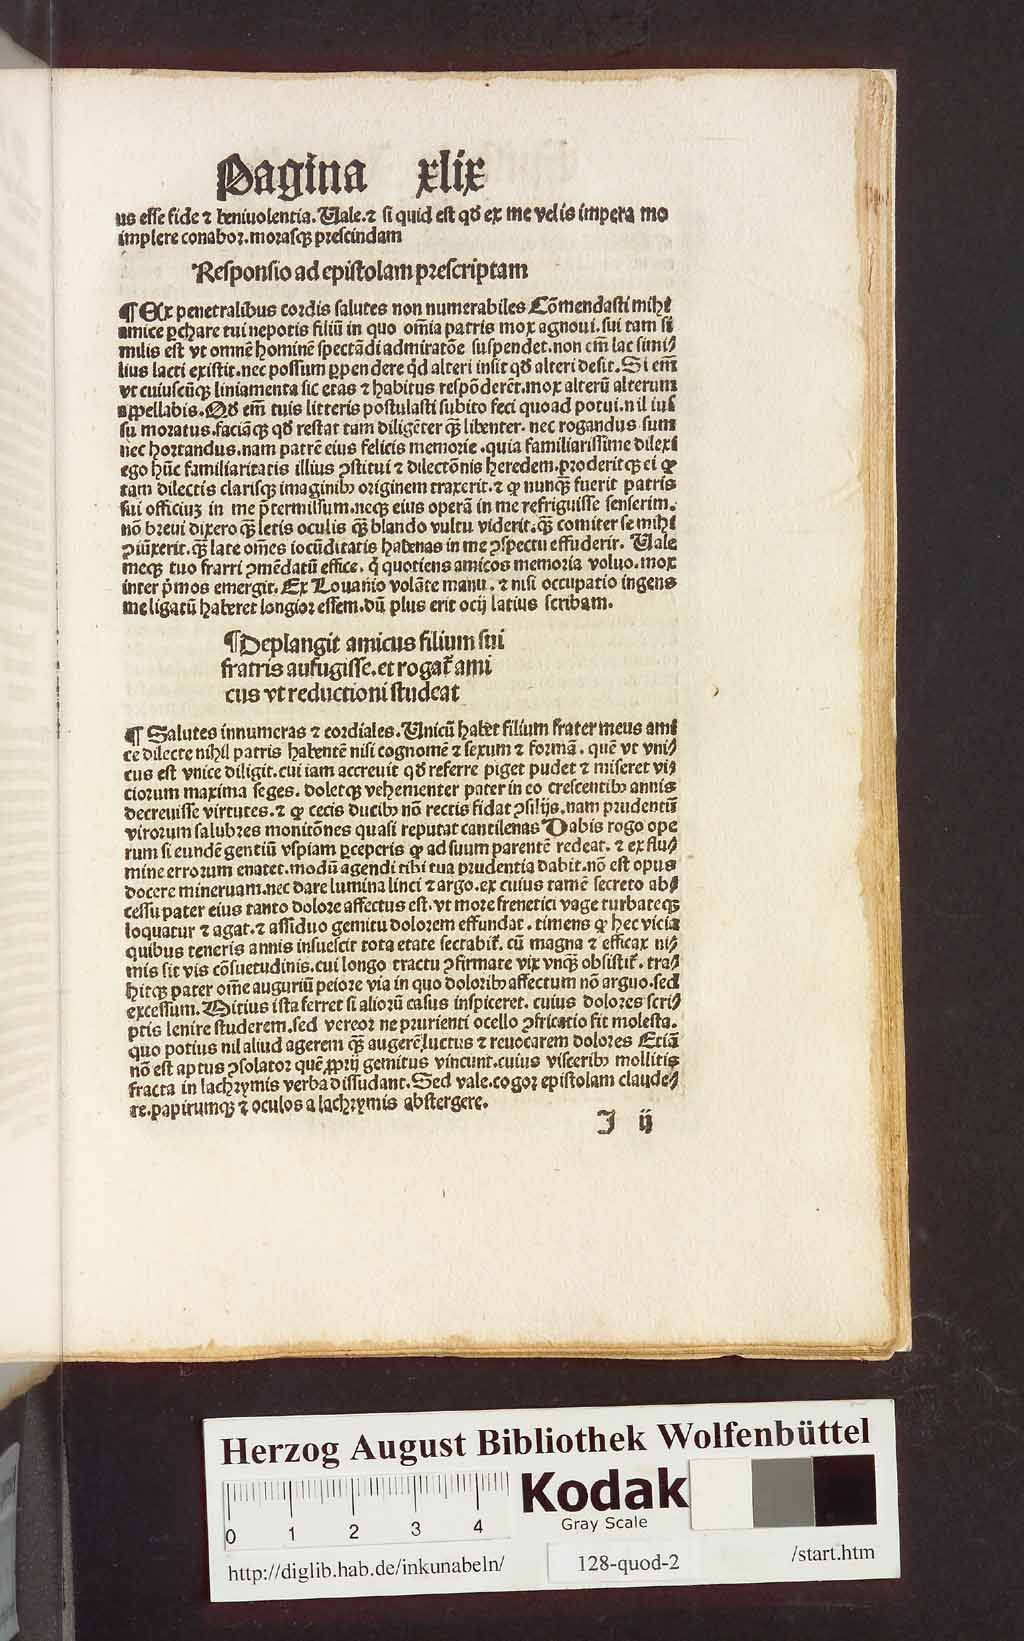 Pagina xlix
us esse fide ⁊ beniuolentia. Vale. ⁊ si quid est qđ ex me velis impera mo
implere conabor. morasqꝫ prescindam
Responsio ad epistolam prescriptam
¶ Ex penetralibus cordis salutes non numerabiles Cōmendasti mihi
amice ꝑchare tui nepotis filiū in quo oīa patris mox agnoui. sui tam si
milis est vt omnē hominē spectādi admiratōe suspendet. non em̄ lac simi⸗
lius lacti existit. nec possum ꝑpendere qd alteri insit qđ alteri desit. Si em̄
vt cuiuscūqꝫ liniamenta sic etas ⁊ habitus respōderēt. mox alterū alterum
appellabis. Qđ em̄ tuis litteris postulasti subito feci quoad potui. nil ius
su moratus. faciāqꝫ qđ restat tam diligēter qꝫ libenter. nec rogandus sum
nec hortandus. nam patrē eius felicis memorie. quia familiarissime dilexi
ego hūc familiaritatis illius ꝯstitui ⁊ dilectōnis heredem. proderitqꝫ ei ꝙ
tam dilectis clarisqꝫ imaginibꝰ originem traxerit. ⁊ ꝙ nunqꝫ fuerit patris
sui officiuꝫ in me p̄termissum. neqꝫ eius operā in me refriguisse senserim.
nō breui dixero qꝫ letis oculis qꝫ blando vultu viderit. qꝫ comiter se mihi
ꝯiūxerit. qꝫ late omēs iocūditatis habenas in me ꝯspectu effuderit. Vale
meqꝫ tuo fratri ꝯmēdatū effice. q̇ quotiens amicos memoria voluo. mox
inter p̄mos emergit. Ex Louanio volāte manu. ⁊ nisi occupatio ingens
me ligatū haberet longior essem. dū plus erit ocij latius scribam.
¶ Deplangit amicus filium sui
fratris aufugisse. et rogat̄ ami
cus vt reductioni studeat
¶ Salutes innumeras ⁊ cordiales. Vnicū habet filium frater meus ami
ce dilecte nihil patris habentē nisi cognomē ⁊ sexum ⁊ formā. quē vt vni⸗
cus est vnice diligit. cui iam accreuit qđ referre piget pudet ⁊ miseret vi⸗
ciorum maxima seges. doletqꝫ vehementer pater in eo crescentibꝰ annis
decreuisse virtutes. ⁊ ꝙ cecis ducibꝰ nō rectis fidat ꝯsilijs. nam prudentū
virorum salubres monitōnes quasi reputat cantilenas Dabis rogo ope
rum si eundē gentiū vspiam ꝑceperis ꝙ ad suum parentē redeat. ⁊ ex flu⸗
mine errorum enatet. modū agendi tibi tua prudentia dabit. nō est opus
docere mineruam. nec dare lumina linci ⁊ argo. ex cuius tamē secreto ab⸗
cessu pater eius tanto dolore affectus est. vt more frenetici vage turbateqꝫ
loquatur ⁊ agat. ⁊ assiduo gemitu dolorem effundat. timens ꝙ hec vicia
quibus teneris annis insuescit tota etate sectabit̄. cū magna ⁊ efficax ni⸗
mis sit vis cōsuetudinis. cui longo tractu ꝯfirmate vix vnqꝫ obsistit̄. tra⸗
hitqꝫ pater om̄e auguriū peiore via in quo doloribꝰ affectum nō arguo. sed
excessum. Mitius ista ferret si aliorū casus inspiceret. cuius dolores scri⸗
ptis lenire studerem. sed vereor ne prurienti ocello ꝯfricatio fit molesta.
quo potius nil aliud agerem qꝫ augerē luctus ⁊ reuocarem dolores Etiā
nō est aptus ꝯsolator quē ꝓprij gemitus vincunt. cuius visceribꝰ mollitis
fracta in lachrymis verba dissudant. Sed vale. cogor epistolam claude⸗
re. papirumqꝫ ⁊ oculos a lachrymis abstergere.
J ij
Herzog August Bibliothek Wolfenbüttel
0 1 2 3 4
Kodak
Gray Scale
http://diglib.hab.de/inkunabeln/
128-quod-2
/start.htm